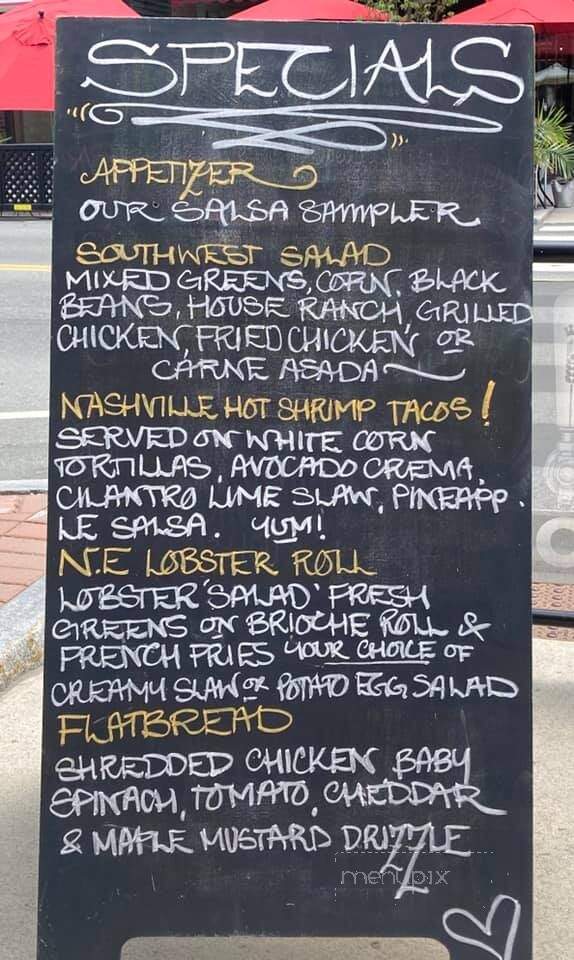 SPECIALS
APPETIZER
OUR SALSA SAMPLER
SOUTHWEST SALAD
MIXED GREENS, CORN, BLACK
BEANS, HOUSE RANCH, GRILLED
CHICKEN, FRIED CHICKEN OR
CARNE ASADA
NASHVILLE HOT SHRIMP TACOS!
SERVED ON WHITE CORN
TORTILLAS, AVOCADO CREMA,
CILANTRO LIME SLAW, PINEAPP.
LE SALSA. YUM!
N.E LOBSTER ROLL
LOBSTER 'SALAD' FRESH
GREENS ON BRIOCHE ROLL &
FRENCH FRIES YOUR CHOICE OF
CREAMY SLAW OR POTATO EGG SALAD
FLATBREAD
SHREDDED CHICKEN, BABY
SPINACH, TOMATO, CHEDDAR
& MAPLE MUSTARD DRIZZLE
menupix